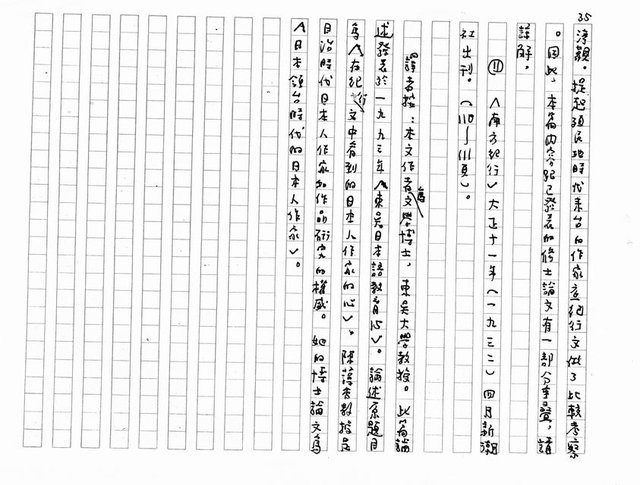 35
淳觀。提起殖民地時代來台的作家意紀行文做了比較考察
。因此，本篇內容跟已發表的修士論文有一部分重疊，請
諒解。
⑪ 《南方紀行》大正十一年（一九二二）四月新潮
社出刊。（110～111頁）。
譯者按：本文作者為文學博士，東吳大學教授。此篇論
述發表於一九九三年《東吳日本語教育15》。論述原題目
為《在紀行文中看到的日本人作家的心》。陳萱杏教授是
日治時代日本人作家和作品研究的權威。她的博士論文為
《日本領台時代的日本人作家》。